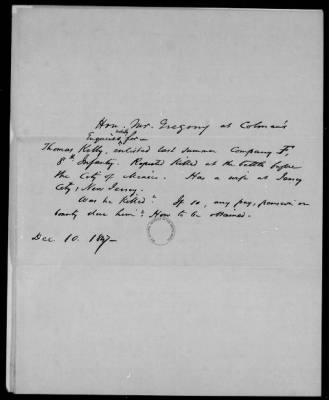 Hon. Mr. Gregory at Colman's
Enquires for
Thomas Kelly, enlisted last summer Company F,
8th Infantry. Reported killed at the battle before
the City of Mexico. Has a wife at Jersey
City, New Jersey.
Was he killed? If so, any pay, pension or
bounty due him? How to be obtained.
Dec 10. 1847